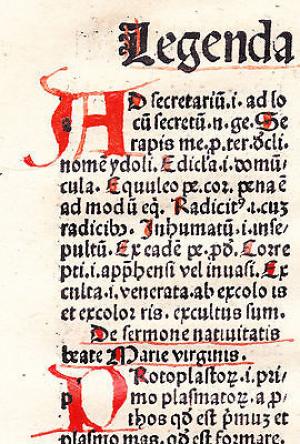 Legenda
AD secretariū.i. ad lo
cū secretū.n.ge. Se
rapis me.p.ter.ꝺ̄cli.
nomē ydoli. Edicla.i.domū⸗
cula. Equuleo ꝑe.coꝛ. pena ē
ad modū eq. Radicitꝰ.i.cuꝫ
radicibꝰ. Inhumatū.i.inse⸗
pultū. Ex eadē ꝑe.pd̄. Coꝛre
pti.i.app̄hensi vel inuasi. Ex
culta.i.venerata.ab excolo is
et excoloꝛ ris. excultus sum.
De sermone natiuitatis
beate Marie virginis.
PRotoplastoꝝ.i.pri⸗
p mo plasmatoꝝ.a ꝓ⸗
thos qd̄ est p̄muꝫ et
plasmo mas.qd̄ est formare.